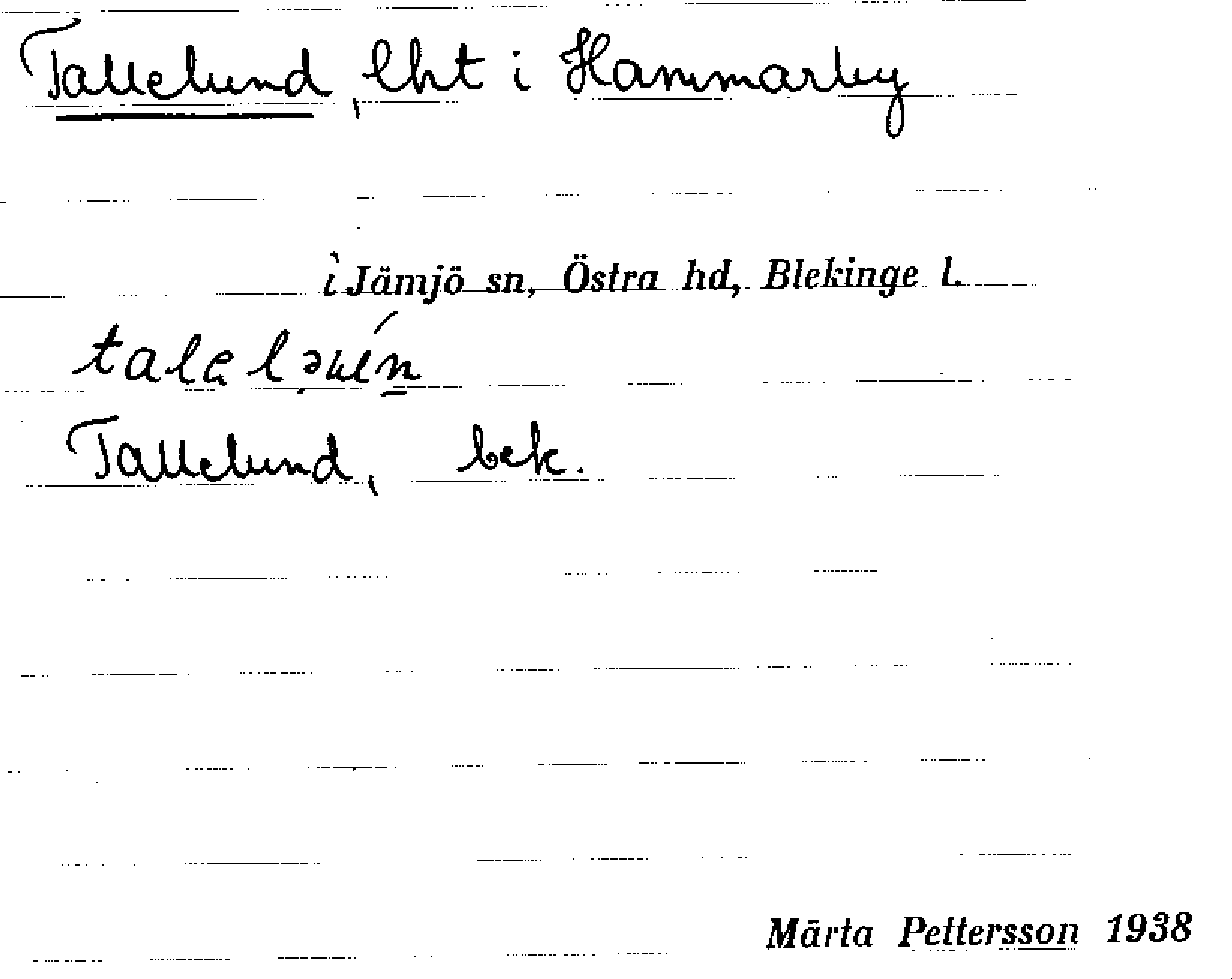 Tallelund, lht i Hammarby
i Jämjö sn, Östra hd, Blekinge l.
Tallelund, bek.
Märta Pettersson 1938